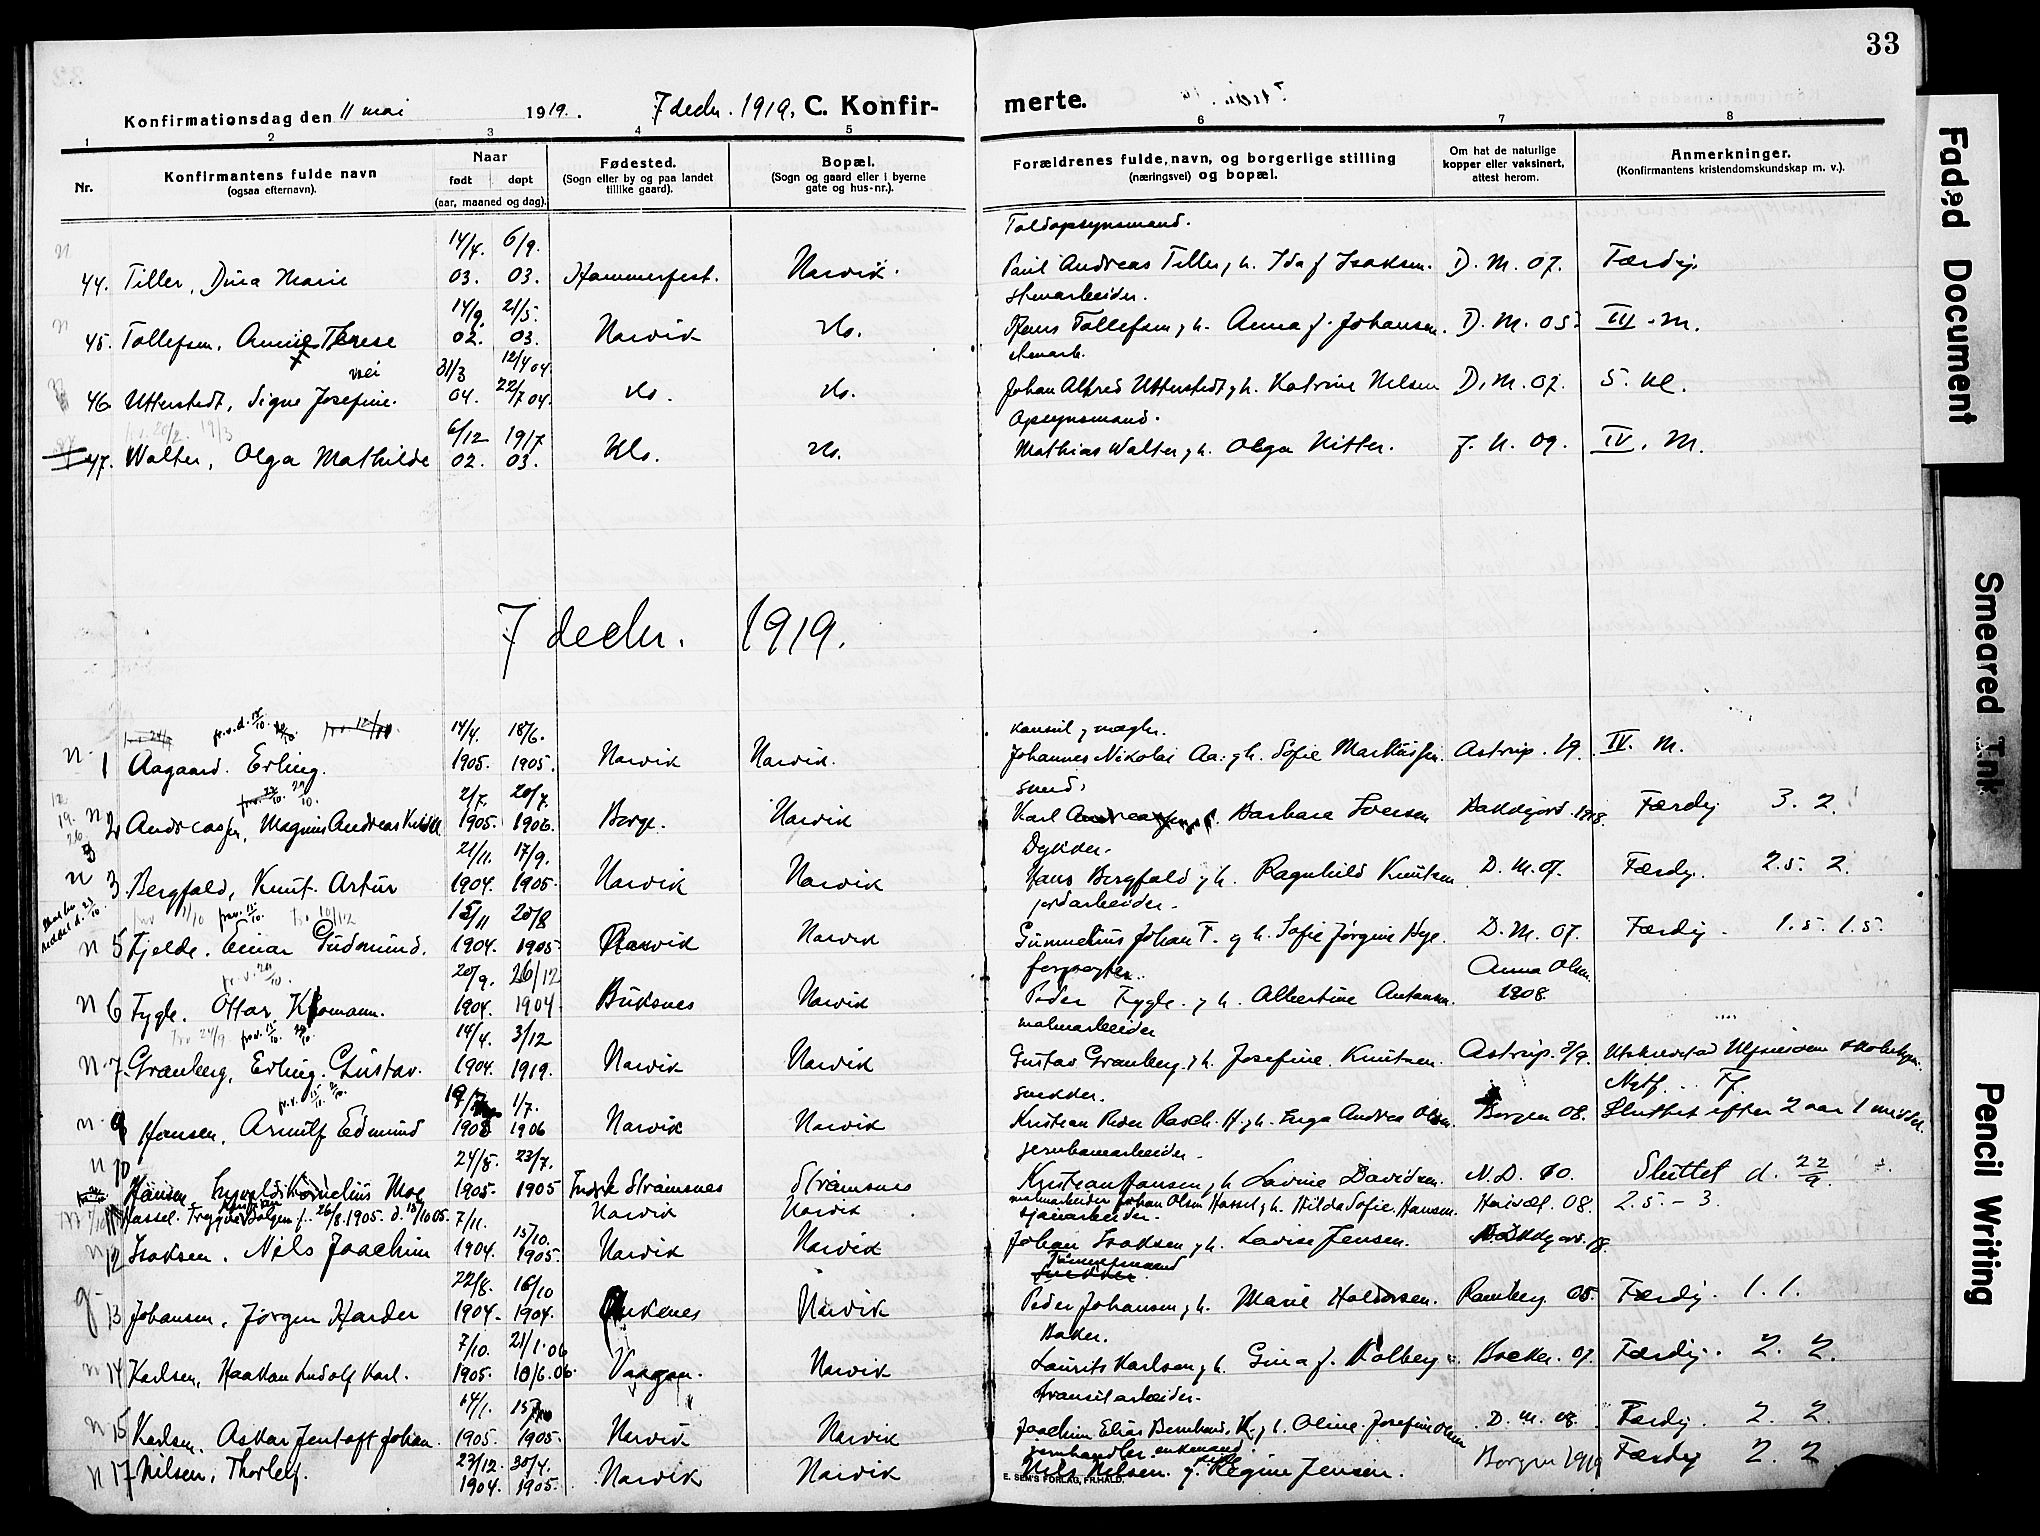 33
Konfirmationsdag den 11 mai 1919. 7 decbr. 1919. C. Konfir-
merte.
1 2 3 4 5 6 7 8
Nr.
Konfirmantens fulde navn
(ogsaa efternavn).
Naar
født døpt
(aar, maaned og dag).
Fødested.
(Sogn eller by og paa landet
tillike gaard).
Bopæl.
(Sogn og gaard eller i byerne
gate og hus-nr.).
Forældrenes fulde, navn, og borgerlige stilling
(næringsvei) og bopæl.
Om hat de naturlige
kopper eller vaksinert,
attest herom.
Anmerkninger.
(Konfirmantens kristendomskundskap m. v.).
n 14/4. 6/9. Toldopsynsmand.
44. Tiller, Dina Marie 03. 03. Hammerfest. Narvik. Paul Andreas Tiller, h. Ida f Isaksen. D. M. 07. Færdig
n 14/9. 21/5. stenarbeider.
45. Tollefsen, Therese 02. 03. Narvik do. Hans Tollefsen g h. Anna f. Johansen. D. M. 05. III. M.
31/3 12/4 04
46. Utterstedt, Signe Josefine. 04. 22/7 04. do. do. Johan Alfred Utterstedt g h. Katrine Nilsen D. M. 07. 5. kl.
6/12 19/7 Opsynsmand.
47. Walter, Olga Mathilde 02. 03. do. do. Mathias Walter g h. Olga Kitter. J. N. 09. IV. M.
7 decbr. 1919.
14/4. 18/6. konsul g mægler.
n. 1 Aagaard. Erling. 1905. 1905. Narvik Narvik. Johannes Nikolai Aa. g h. Sofie Markussen. Astrup. 19. IV. M.
2/7. 20/7. smed.
n 2 Andreassen, Magnus Andreas 1905. 1906. Borge. Narvik Karl Barbara Iversen Bakkejord. 1918. Færdig 3. 2.
21/11. 17/9. Dykker.
n 3. Bergfald, Knut. Artur 1904. 1905. Narvik Narvik Hans Bergfald g h. Ragnhild Knutsen D. M. 07. Færdig. 2.5. 2.
15/11 20/8 jordarbeider.
n 5 Fjelde. Einar Gudmund. 1904. 1905. Narvik Narvik Johan F. g h. Sofie Jørgine Hye. D. M. 07. Færdig. 1.5. 1.5.
20/9. 26/12 forpagter. Anna Olsen
n 6 Fygle. Ottar 1904. 1904. Buksnes Narvik Peder Fygle. g h. Albertine Antonsen. 1908.
14/4. 3/12 malmarbeider
n. 7. Granberg, Erling. Gustav. 1904. 1919. Narvik Narvik Gustav Granberg, g h. Josefine. Knutsen. Astrup. 2/9. Utskrevet
1/7. snekker.
n. 9 Hansen, Arnulf Edmund 1906 Narvik Narvik Kristian Peder Rasch. H. g h. Inga Andrea Olsen. Borgen 08. Sluttet efter 2 aar 1 
24/5. 23/7. jernbanearbeider.
n 10 Hansen, Ingvald Kornelius Moe 1905. 1905 Strømsnes Strømsnes Kristian Hansen, g h Lovine Davidsen. N. D. 10. Sluttet d. 22/9.
11 Hassel. Trygve f. 26/8.1905. d. 15/10 05. Narvik Narvik malmarbeider Johan Olsen Hassel, g h. Hilda Sofie. Hansen. 08. 2.5. - 3.
7/11. 15/10. sjauarbeider.
n 12 Isaksen. Nils Joachim 1904. 1905. Narvik Narvik Johan Isaksen g h. Lovise Jensen. 18.
22/8. 16/10 snekker.
g. 13 Johansen, Jørgen Harder 1904. 1904. Ankenes Narvik Peder Johansen, g h. Marie Haldorsen. Ramberg 05. Færdig. 1. 1.
7/10. 21/1. 06 Baker.
n 14 Karlsen, Haakon Ludolf Karl. 1905. 18/6. 06. Vaagan. Narvik Laurits Karlsen, g h. Gina f. Kolberg Boeker. 07. Færdig. 2. 2.
14/1. transitarbeider.
n 15 Karlsen. Oskar Jentoft Johan. 1905. 1905. Narvik Narvik Joachim Elias Bernhard. K. g h. Oline. Josefine Olsen D. M. 08. Færdig. 2. 2.
23/12. 30/4. jernhandler. enkemand.
n 17 Nilsen, Thorleif. 1904. 1905. Narvik Narvik Nils Nilsen. g. Regine Jensen. Borgen 1919 Færdig 2. 2
E. SEM'S FORLAG, FR.HALD.
Faded Document
Smeared Ink
Pencil Writing